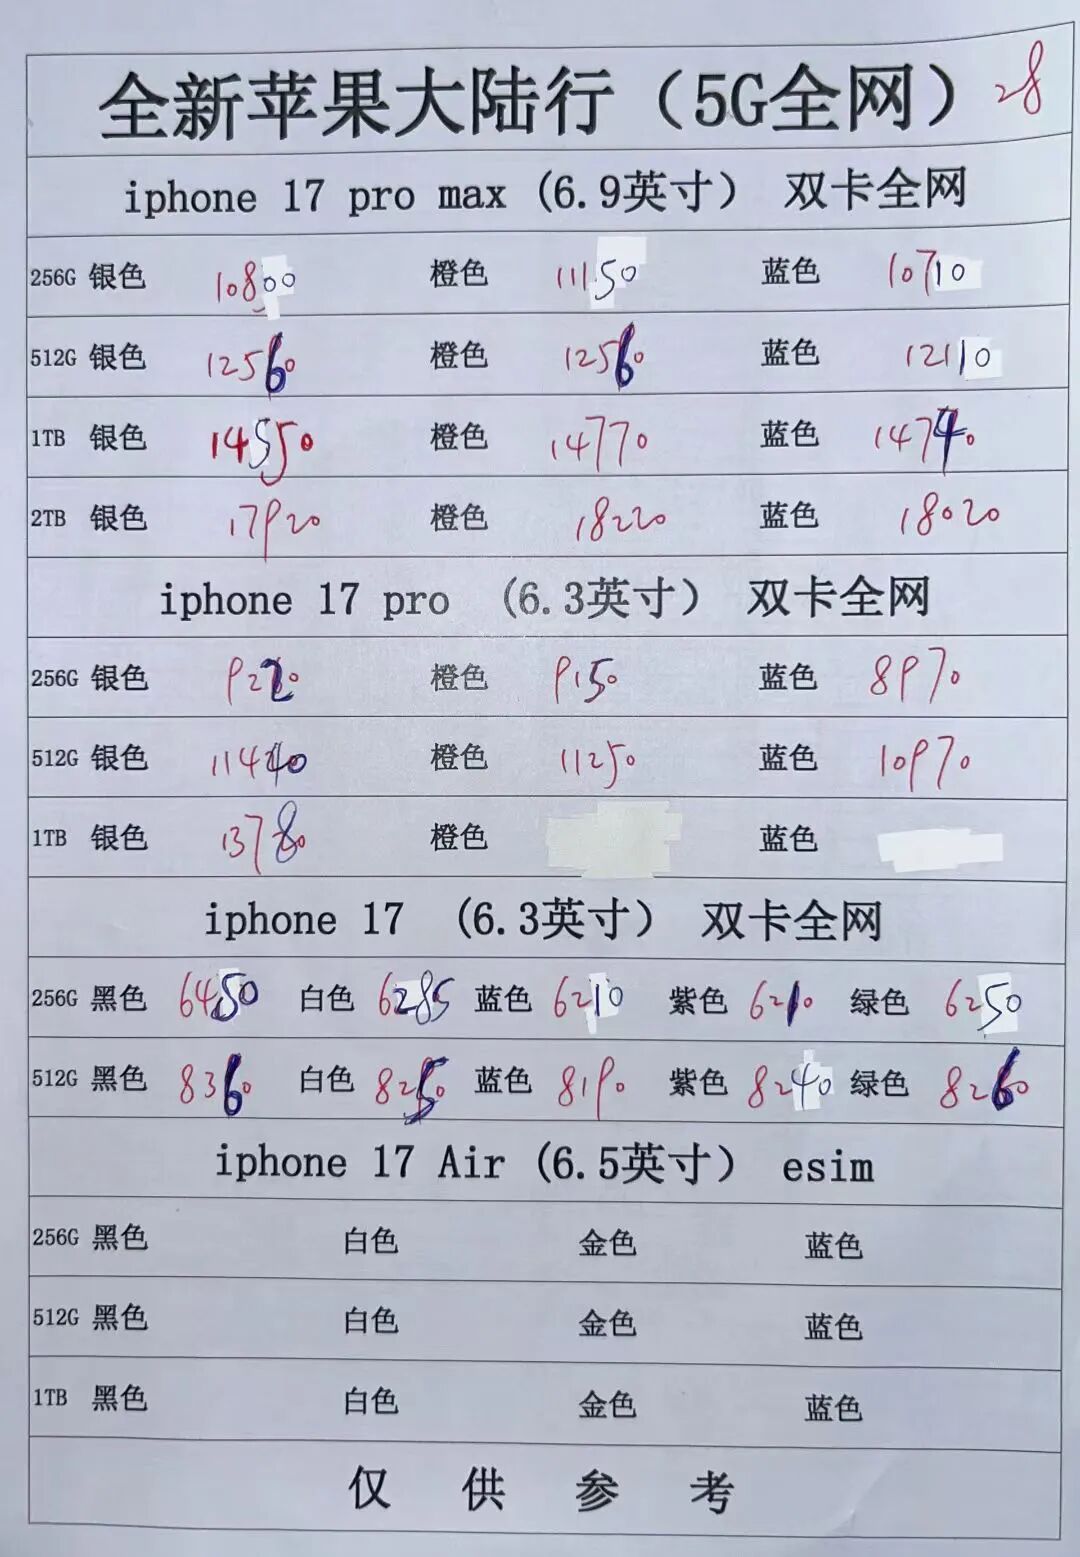 全新苹果大陆行（5G全网） 28
iphone 17 pro max (6.9英寸） 双卡全网
256G 银色 10800 橙色 11150 蓝色 10710
512G 银色 12560 橙色 12560 蓝色 12110
1TB 银色 14550 橙色 14770 蓝色 14740
2TB 银色 17920 橙色 18220 蓝色 18020
iphone 17 pro （6.3英寸） 双卡全网
256G 银色 9220 橙色 9150 蓝色 8970
512G 银色 11440 橙色 11250 蓝色 10970
1TB 银色 13780 橙色 蓝色
iphone 17 (6.3英寸） 双卡全网
256G 黑色 6450 白色 6285 蓝色 6210 紫色 6210 绿色 6250
512G 黑色 8360 白色 8250 蓝色 8190 紫色 8240 绿色 8260
iphone 17 Air (6.5英寸） esim
256G 黑色 白色 金色 蓝色
512G 黑色 白色 金色 蓝色
1TB 黑色 白色 金色 蓝色
仅 供 参 考